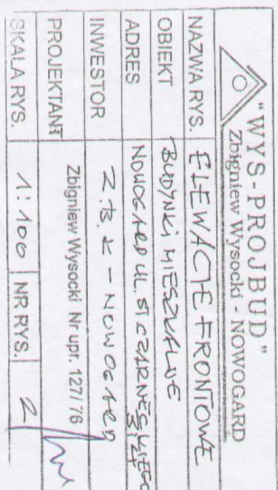 "WYS-PROJBUD"
Zbigniew Wysocki - NOWOGARD
NAZWA RYS. ELEWACJE FRONTOWE
OBIEKT BUDYNKI MIESZKALNE
ADRES NOWOGARD UL. ST. CZARNIECKIEGO
INWESTOR Z.B.K - NOWOGARD
PROJEKTANT Zbigniew Wysocki Nr upr. 127/76
SKALA RYS. 1:100 NR RYS. 2